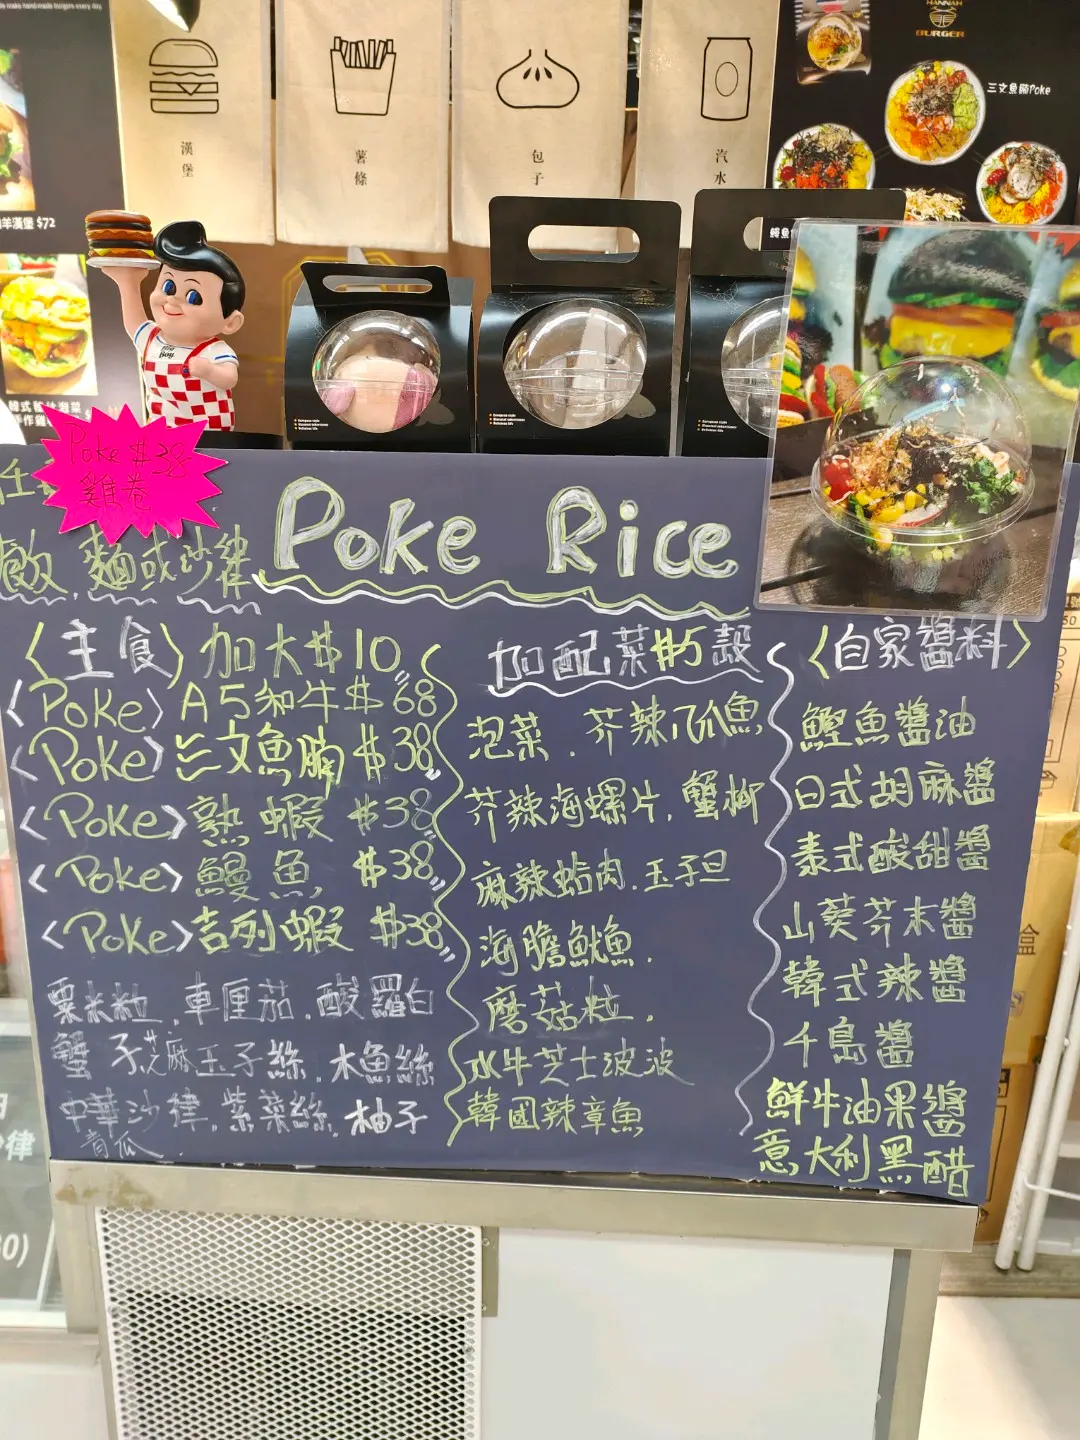 make hand-made burgers every day
漢堡
薯條
包子
汽水
HANNAH
BURGER
三文魚腩Poke
羊漢堡 $72
Big Boy
Poke $38
雞卷
Poke Rice
麵或沙律
〈主食〉加大$10
〈Poke〉A5和牛$68
〈Poke〉三文魚腩$38
〈Poke〉熟蝦$38
〈Poke〉鰻魚$38
〈Poke〉吉列蝦$38
粟米粒.車厘茄.酸蘿白
蟹子芝麻玉子絲.木魚絲
中華沙律.紫菜絲.柚子
青瓜.
加配菜$5款
泡菜.芥辣八爪魚
芥辣海螺片.蟹柳
麻辣蛤肉.玉子旦
海膽魷魚.
磨菇粒.
水牛芝士波波
韓國辣章魚
〈自家醬料〉
鰹魚醬油
日式胡麻醬
泰式酸甜醬
山葵芥末醬
韓式辣醬
千島醬
鮮牛油果醬
意大利黑醋